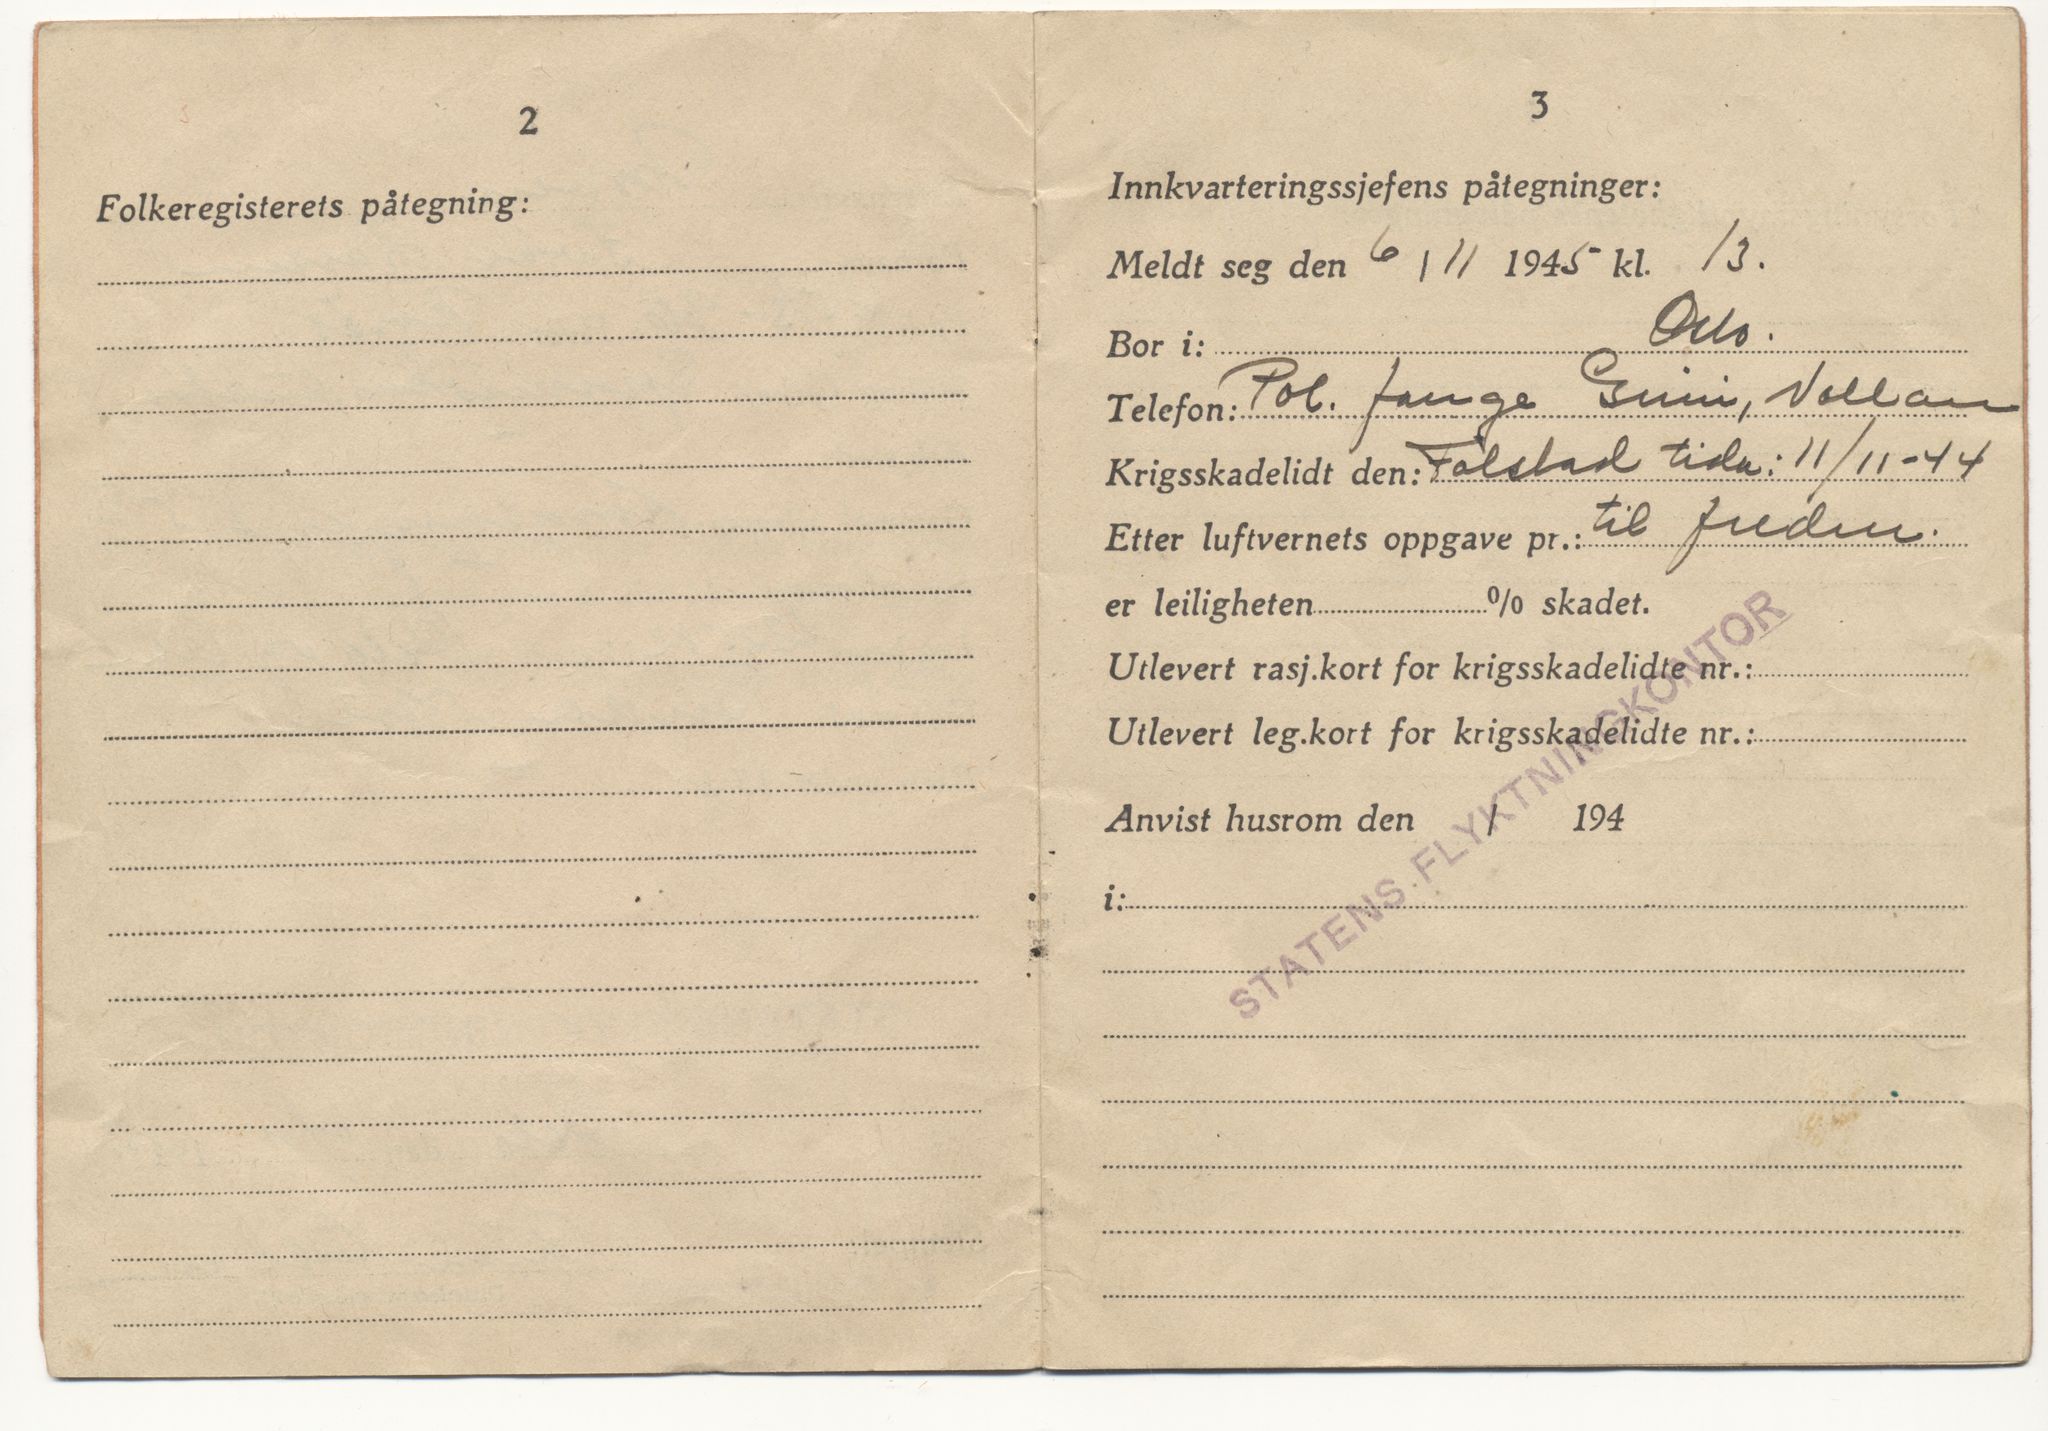 2
Folkeregisterets påtegning:
3
Innkvarteringssjefens påtegninger:
Meldt seg den 6/11 1945 kl. 13.
Bor i: Oslo.
Telefon: Pol. fange Grini, Vollan
Krigsskadelidt den: Falstad tidn: 11/11-44
Etter luftvernets oppgave pr.: til freden.
er leiligheten % skadet.
Utlevert rasj.kort for krigsskadelidte nr.:
Utlevert leg.kort for krigsskadelidte nr.:
Anvist husrom den / 194
i:
STATENS FLYKTNINGKONTOR